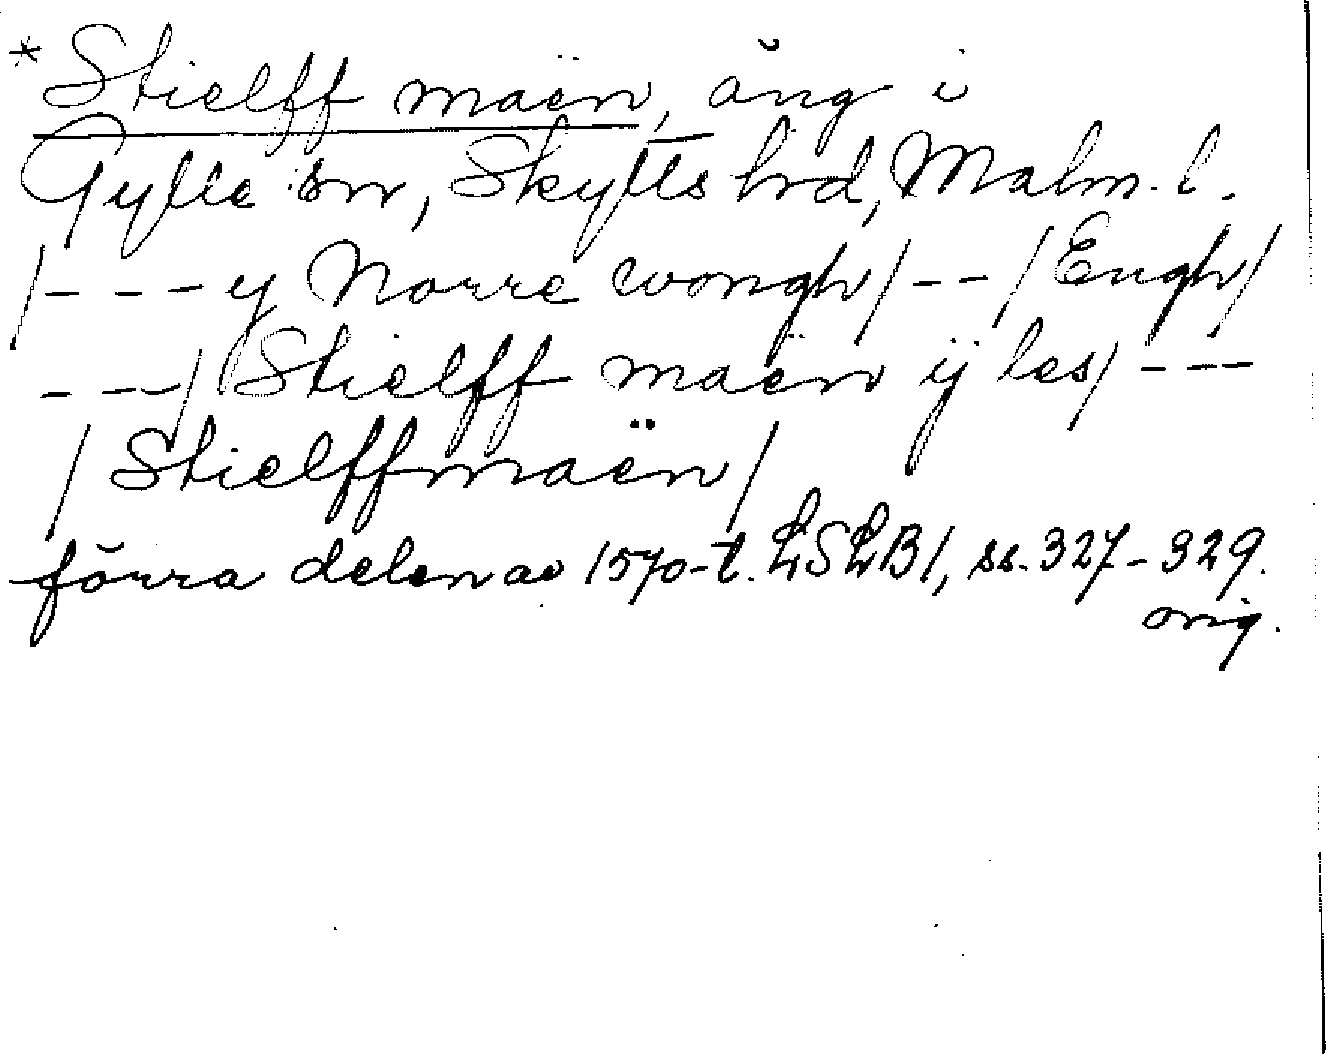 * Stielff maën, äng i
Gylle sn, Skytts hrd, Malm. l.
/--- y Norre wongh/--/Engh/
---/Stielff maën ÿ les/---
/Stielffmaën/
förra delen av 1570-t. LSLB1, ss. 327-329.
orig.